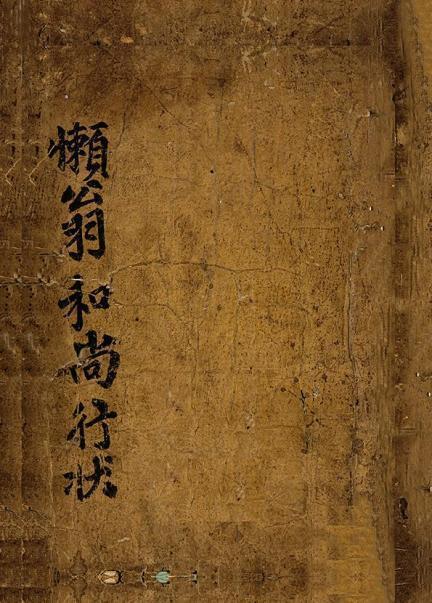 懶翁和尚行状